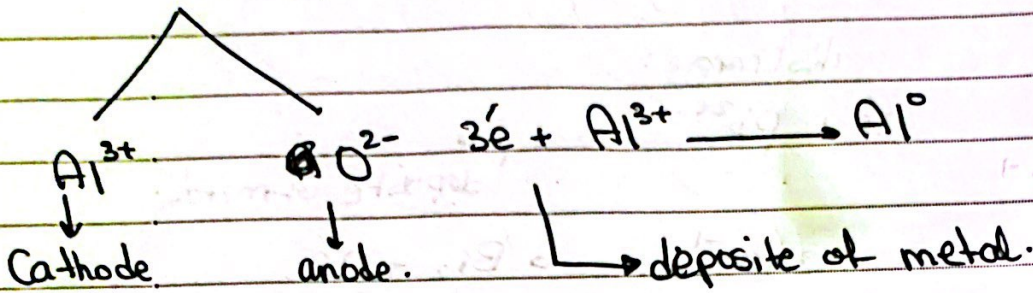 Al³⁺ O²⁻ 3é + Al³⁺ → Al°
↓ ↓
Cathode anode. → deposite of metal.